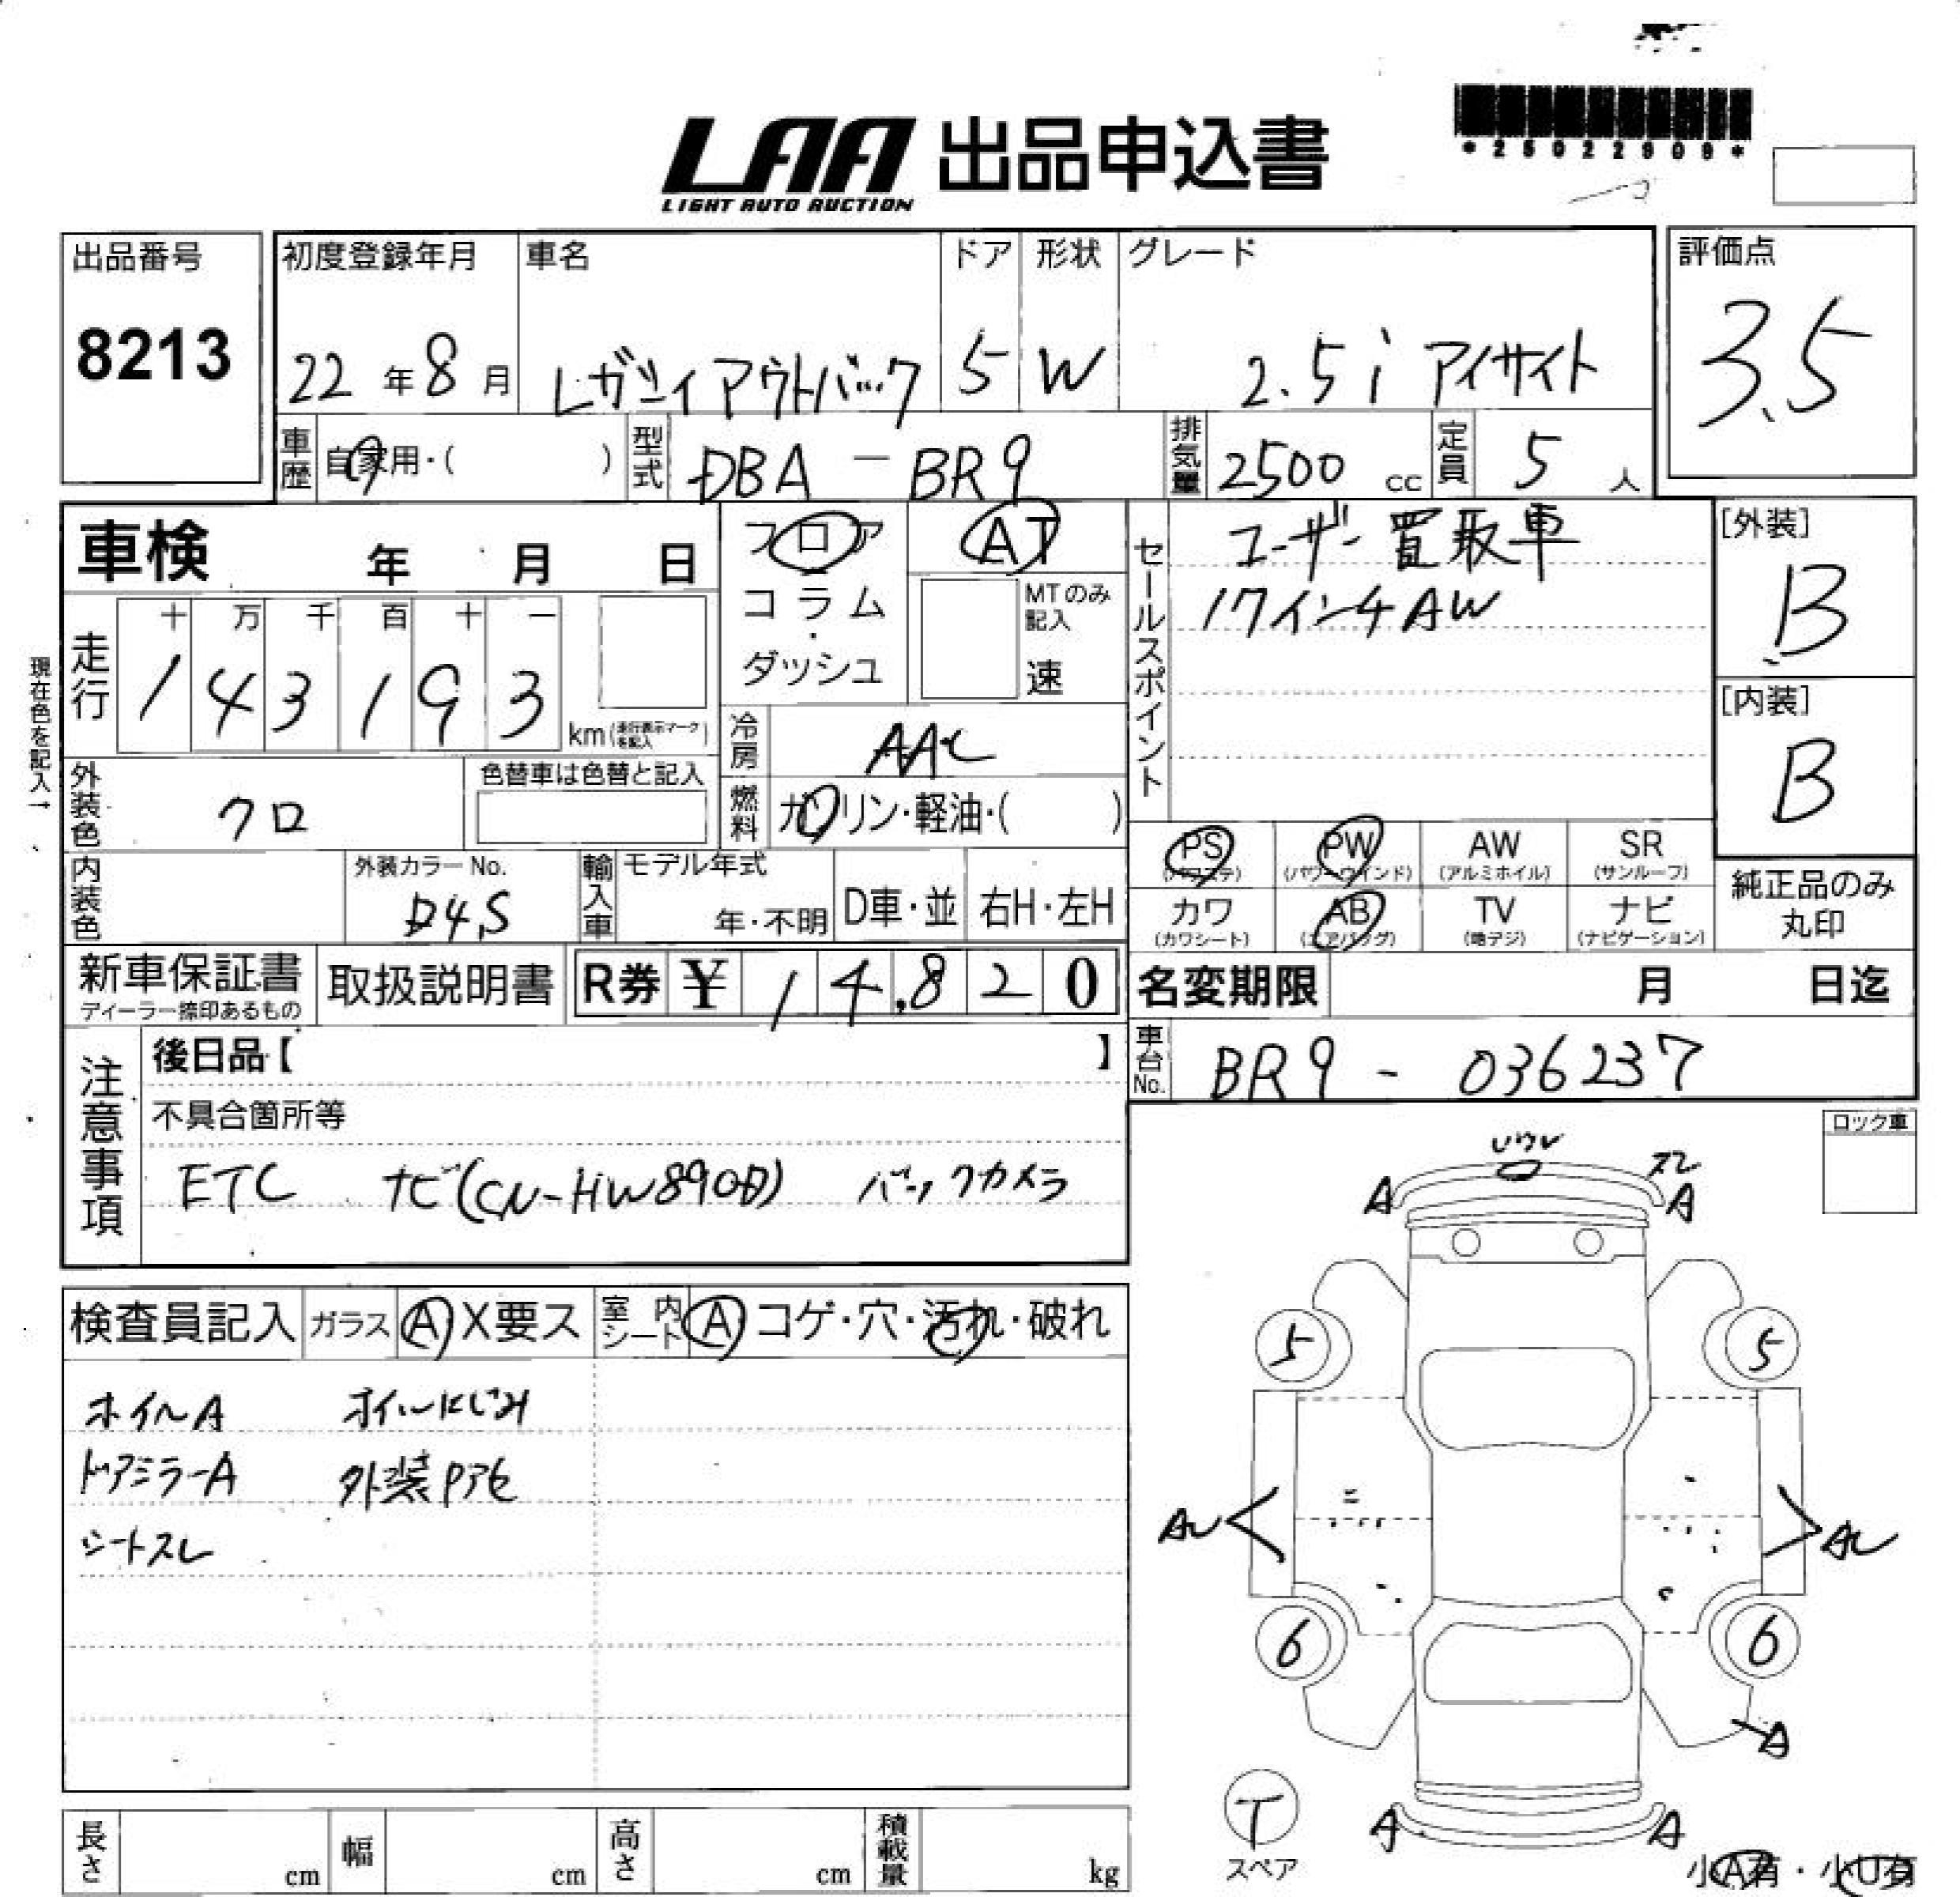 *25022909*
LAA 出品申込書
LIGHT AUTO AUCTION
出品番号
8213
初度登録年月
22年8月
車名
レガシィアウトバック
ドア
5
形状
W
グレード
2.5i アイサイト
評価点
3.5
車歴
自家用・( )
型式
DBA-BR9
排気量
2500 cc
定員
5人
車検 年 月 日
フロア
コラム
・
ダッシュ
AT
MTのみ
記入
速
セールスポイント
ユーザー買取車
17インチAW
[外装]
B
[内装]
B
現在色を記入→
走行
十 万 千 百 十 一
1 4 3 1 9 3
km(走行表示マークを記入)
冷房
AAC
燃料
ガソリン・軽油・( )
外装色
クロ
色替車は色替と記入
内装色
外装カラーNo.
D4S
輸入車
モデル年式
年・不明
D車・並
右H・左H
PS
(パワステ)
PW
(パワーウインド)
AW
(アルミホイル)
SR
(サンルーフ)
カワ
(カワシート)
AB
(エアバッグ)
TV
(地デジ)
ナビ
(ナビゲーション)
純正品のみ
丸印
新車保証書
ディーラー捺印あるもの
取扱説明書
R券 ¥ 14,820
名変期限 月 日迄
車台No.
BR9-036237
注意事項
後日品【 】
不具合箇所等
ETC ナビ(CN-HW890D) バックカメラ
ロック車
検査員記入
ガラス
A X要ス
室内シート
A コゲ・穴・汚れ・破れ
ホイルA オイルにじみ
ドアミラーA 外装Pアセ
シートスレ
A
スレ
A
5
5
6
6
A
T
スペア
A
A
小A有・小U有
長さ cm
幅 cm
高さ cm
積載量 kg